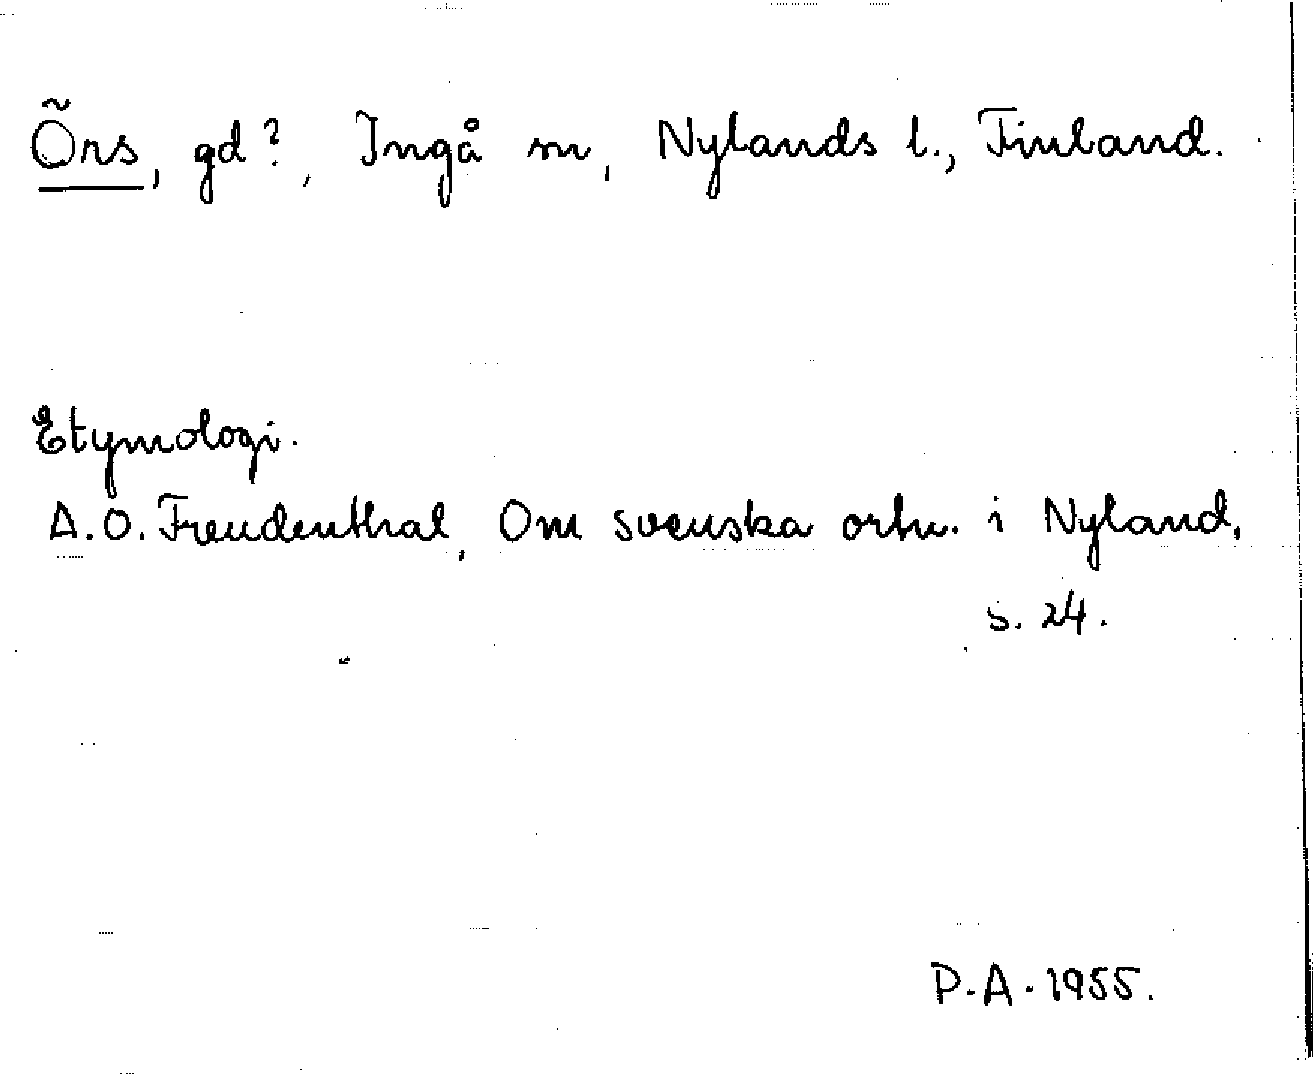 Õrs, gd?, Ingå sn, Nylands l., Finland.
Etymologi.
A.O. Freudenthal, Om svenska ortn. i Nyland,
s. 24.
P.A. 1955.